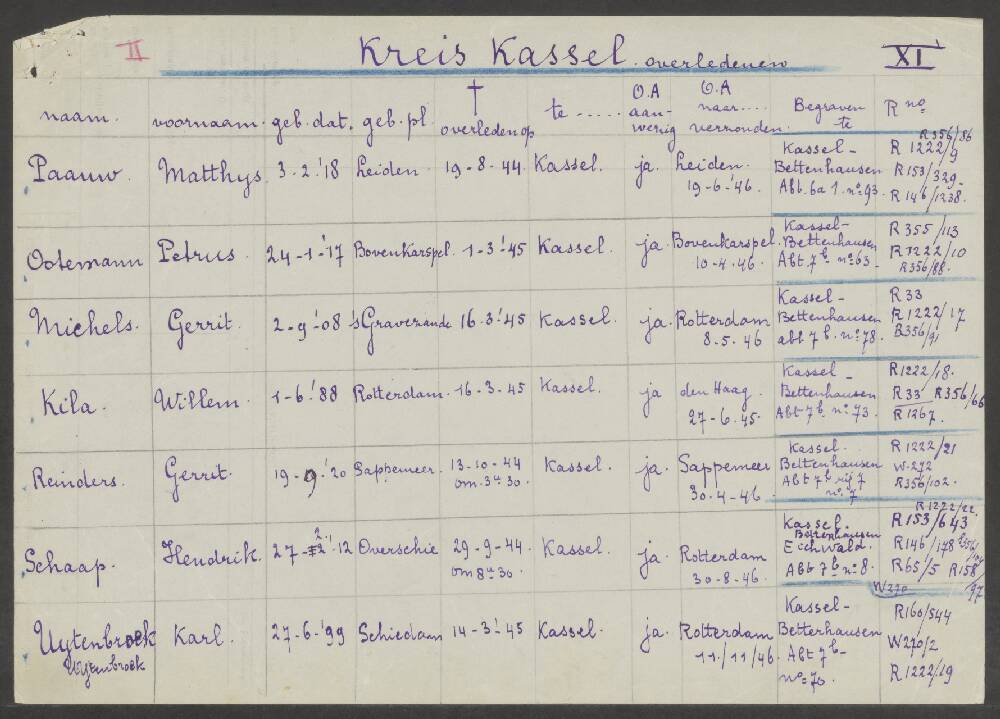 II Kreis Kassel. overledenen XI
naam. voornaam. geb. dat. geb. pl. † overleden op te ..... O.A aan-wezig O.A naar.... verzonden. Begraven te R no.
Paauw. Matthys. 3-2-'18 Leiden. 19-8-44. Kassel. ja. Leiden. 19-6-'46. Kassel- Bettenhausen Abt. 6a 1. no. 93. R356/86 R1222/9 R153/329. R146/1238.
Ootemann Petrus. 24-1-'17 Bovenkarspel. 1-3-'45 Kassel. ja. Bovenkarspel. 10-4-46. Kassel- Bettenhausen Abt 7b no. 63. R355/113 R1222/10 R356/88.
Michels. Gerrit. 2-9-'08 's Graverande 16-3-'45 Kassel. ja. Rotterdam 8.5.46 Kassel- Bettenhausen abt 7b. no. 78. R33 R1222/17 R356/91
Kila. Willem. 1-6-'88 Rotterdam. 16-3-45 Kassel. ja den Haag. 27-6-45. Kassel- Bettenhausen Abt 7b. no. 73. R1222/18. R33 R356/66 R1267.
Reinders. Gerrit. 19-9-'20 Sappemeer. 13-10-44 om. 3u 30. Kassel. ja. Sappemeer 30-4-46. Kassel. Bettenhausen Abt 7b rij 7 no. 7 R1222/21 W-272 R356/102.
Schaap. Hendrik. 27-2-'12 Overschie 29-9-44. om 8u 30. Kassel. ja. Rotterdam 30-8-46. Kassel. Bettenhausen Eichwald. Abt 7b no. 8. R1222/22. R153/643 R146/178 R65/5 R158/97 W270
Uytenbroek Uyzenbroek Karl. 27-6-'99 Schiedam 14-3-'45 Kassel. ja. Rotterdam 11/11/46. Kassel- Betterhausen Abt 7b- no. 70. R160/544 W270/2 R1222/19